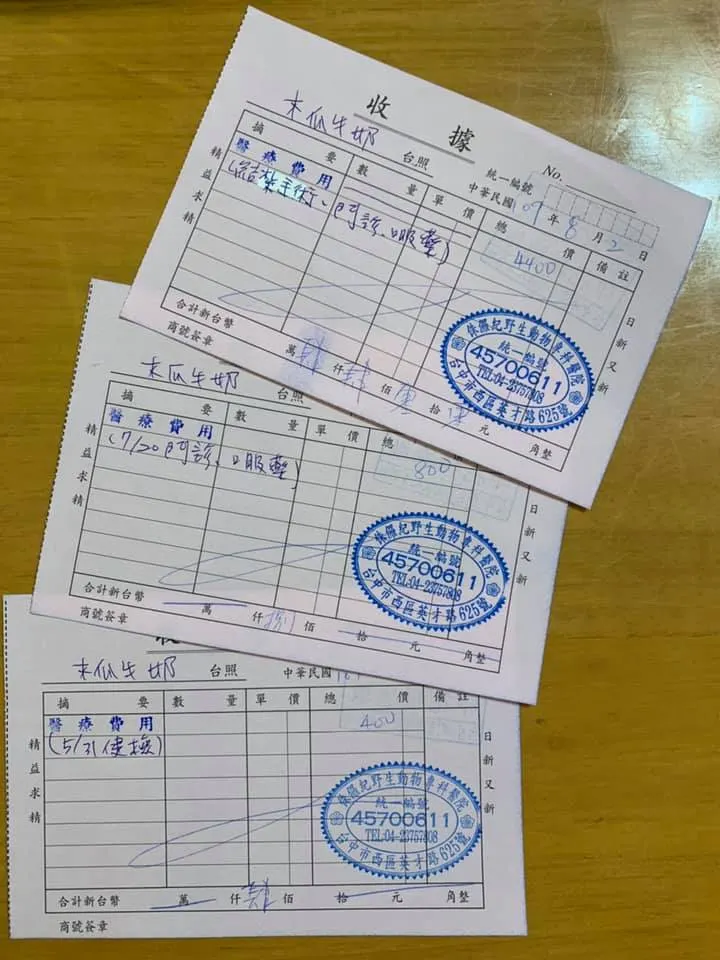 收據
木瓜牛奶 台照
No.
統一編號
中華民國109年8月2日
摘要 數量 單價 總價 備註
醫療費用
(結紮手術、門診、口服藥)
4400
精益求精
日新又新
合計新台幣 萬肆仟肆佰零拾零元 角整
商號簽章
侏儸紀野生動物專科醫院
統一編號
45700611
TEL:04-23757808
台中市西區英才路625號
木瓜牛奶 台照
摘要 數量 單價 總
醫療費用
(7/20門診、口服藥)
800
精益求精
日新又新
合計新台幣 萬 仟捌佰 拾 元 角整
商號簽章
侏儸紀野生動物專科醫院
統一編號
45700611
TEL:04-23757808
台中市西區英才路625號
木瓜牛奶 台照 中華民國
摘要 數量 單價 總價 備註
醫療費用
(5/31便檢)
400
精益求精
日新又新
合計新台幣 萬 仟肆佰 拾 元 角整
商號簽章
侏儸紀野生動物專科醫院
統一編號
45700611
TEL:04-23757808
台中市西區英才路625號